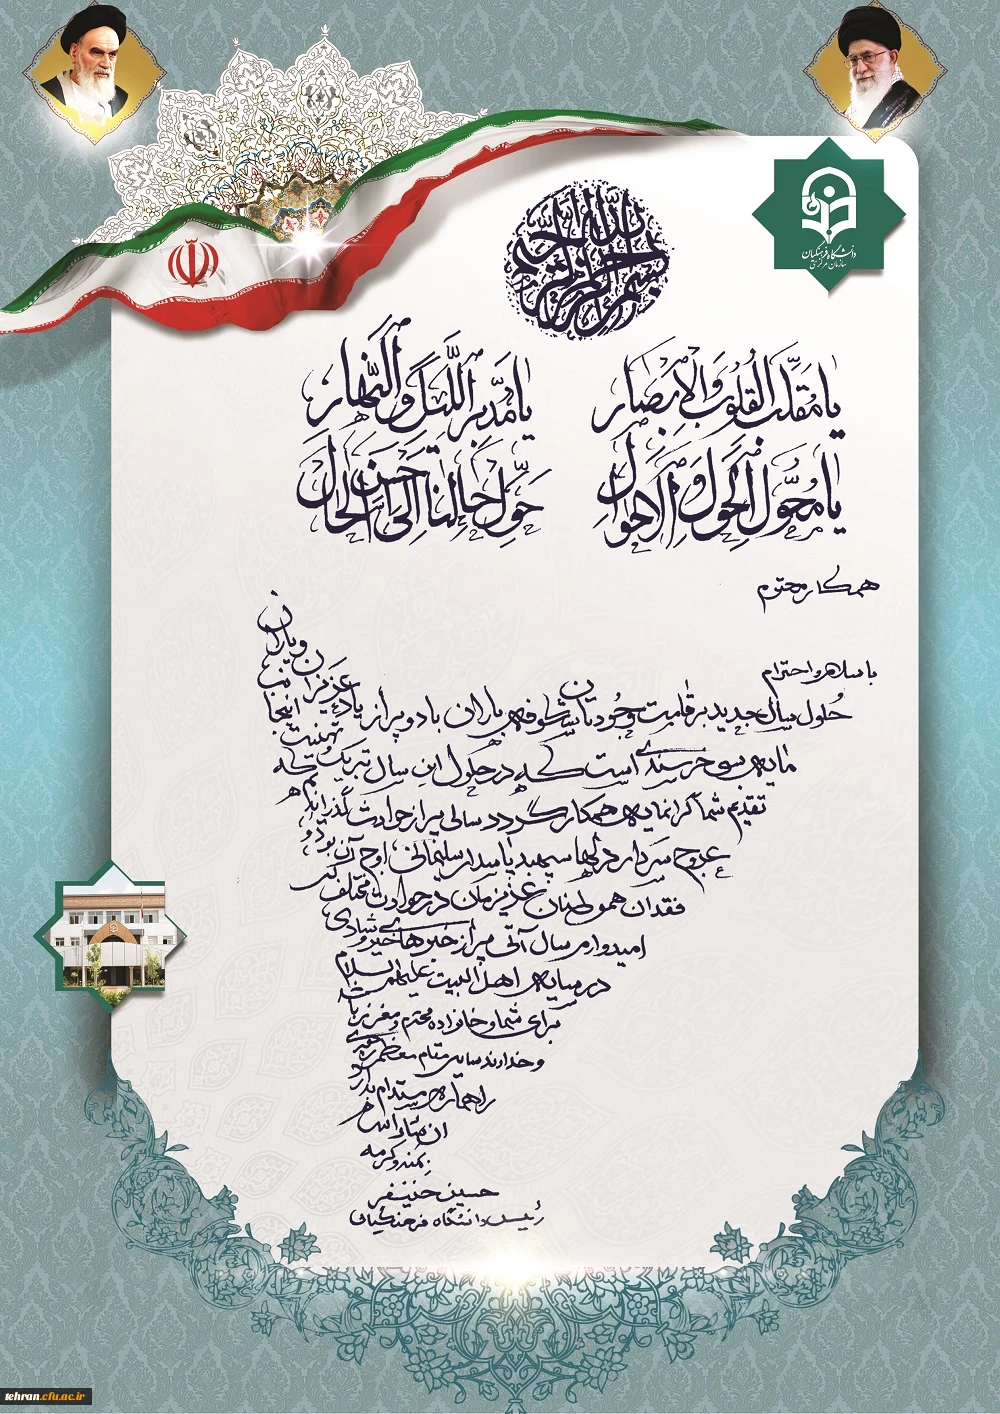 بسم الله الرحمن الرحیم
دانشگاه فرهنگیان
سازمان مرکزی
یا مقلب القلوب و الابصار
یا مدبر اللیل و النهار
یا محول الحول و الاحوال
حول حالنا الی احسن الحال
همکار محترم
با سلام و احترام
حلول سال جدید بر قامت وجودتان شکوفه باران باد و پر از یاد عزیزان و یاران
مایه بسی خرسندی است که در حلول این سال تبریک و تهنیت
تقدیم شما گرانمایه همکار گردد سالی پر از حوادث گذراندیم که
عروج سردار دلها سپهبد پاسدار سلیمانی، اوج آن بود و
فقدان هموطنان عزیزمان در حوادث مختلف
امیدوارم سال آتی پر از خبرهای خیر و شادی
در سایه اهل البیت علیهم السلام
برای شما و خانواده محترم و معزز باشد
و خداوند سایه مقام معظم رهبری
را همواره مستدام بدارد
ان شاء الله
بمنه و کرمه
حسین خنیفر
رئیس دانشگاه فرهنگیان
tehran.cfu.ac.ir